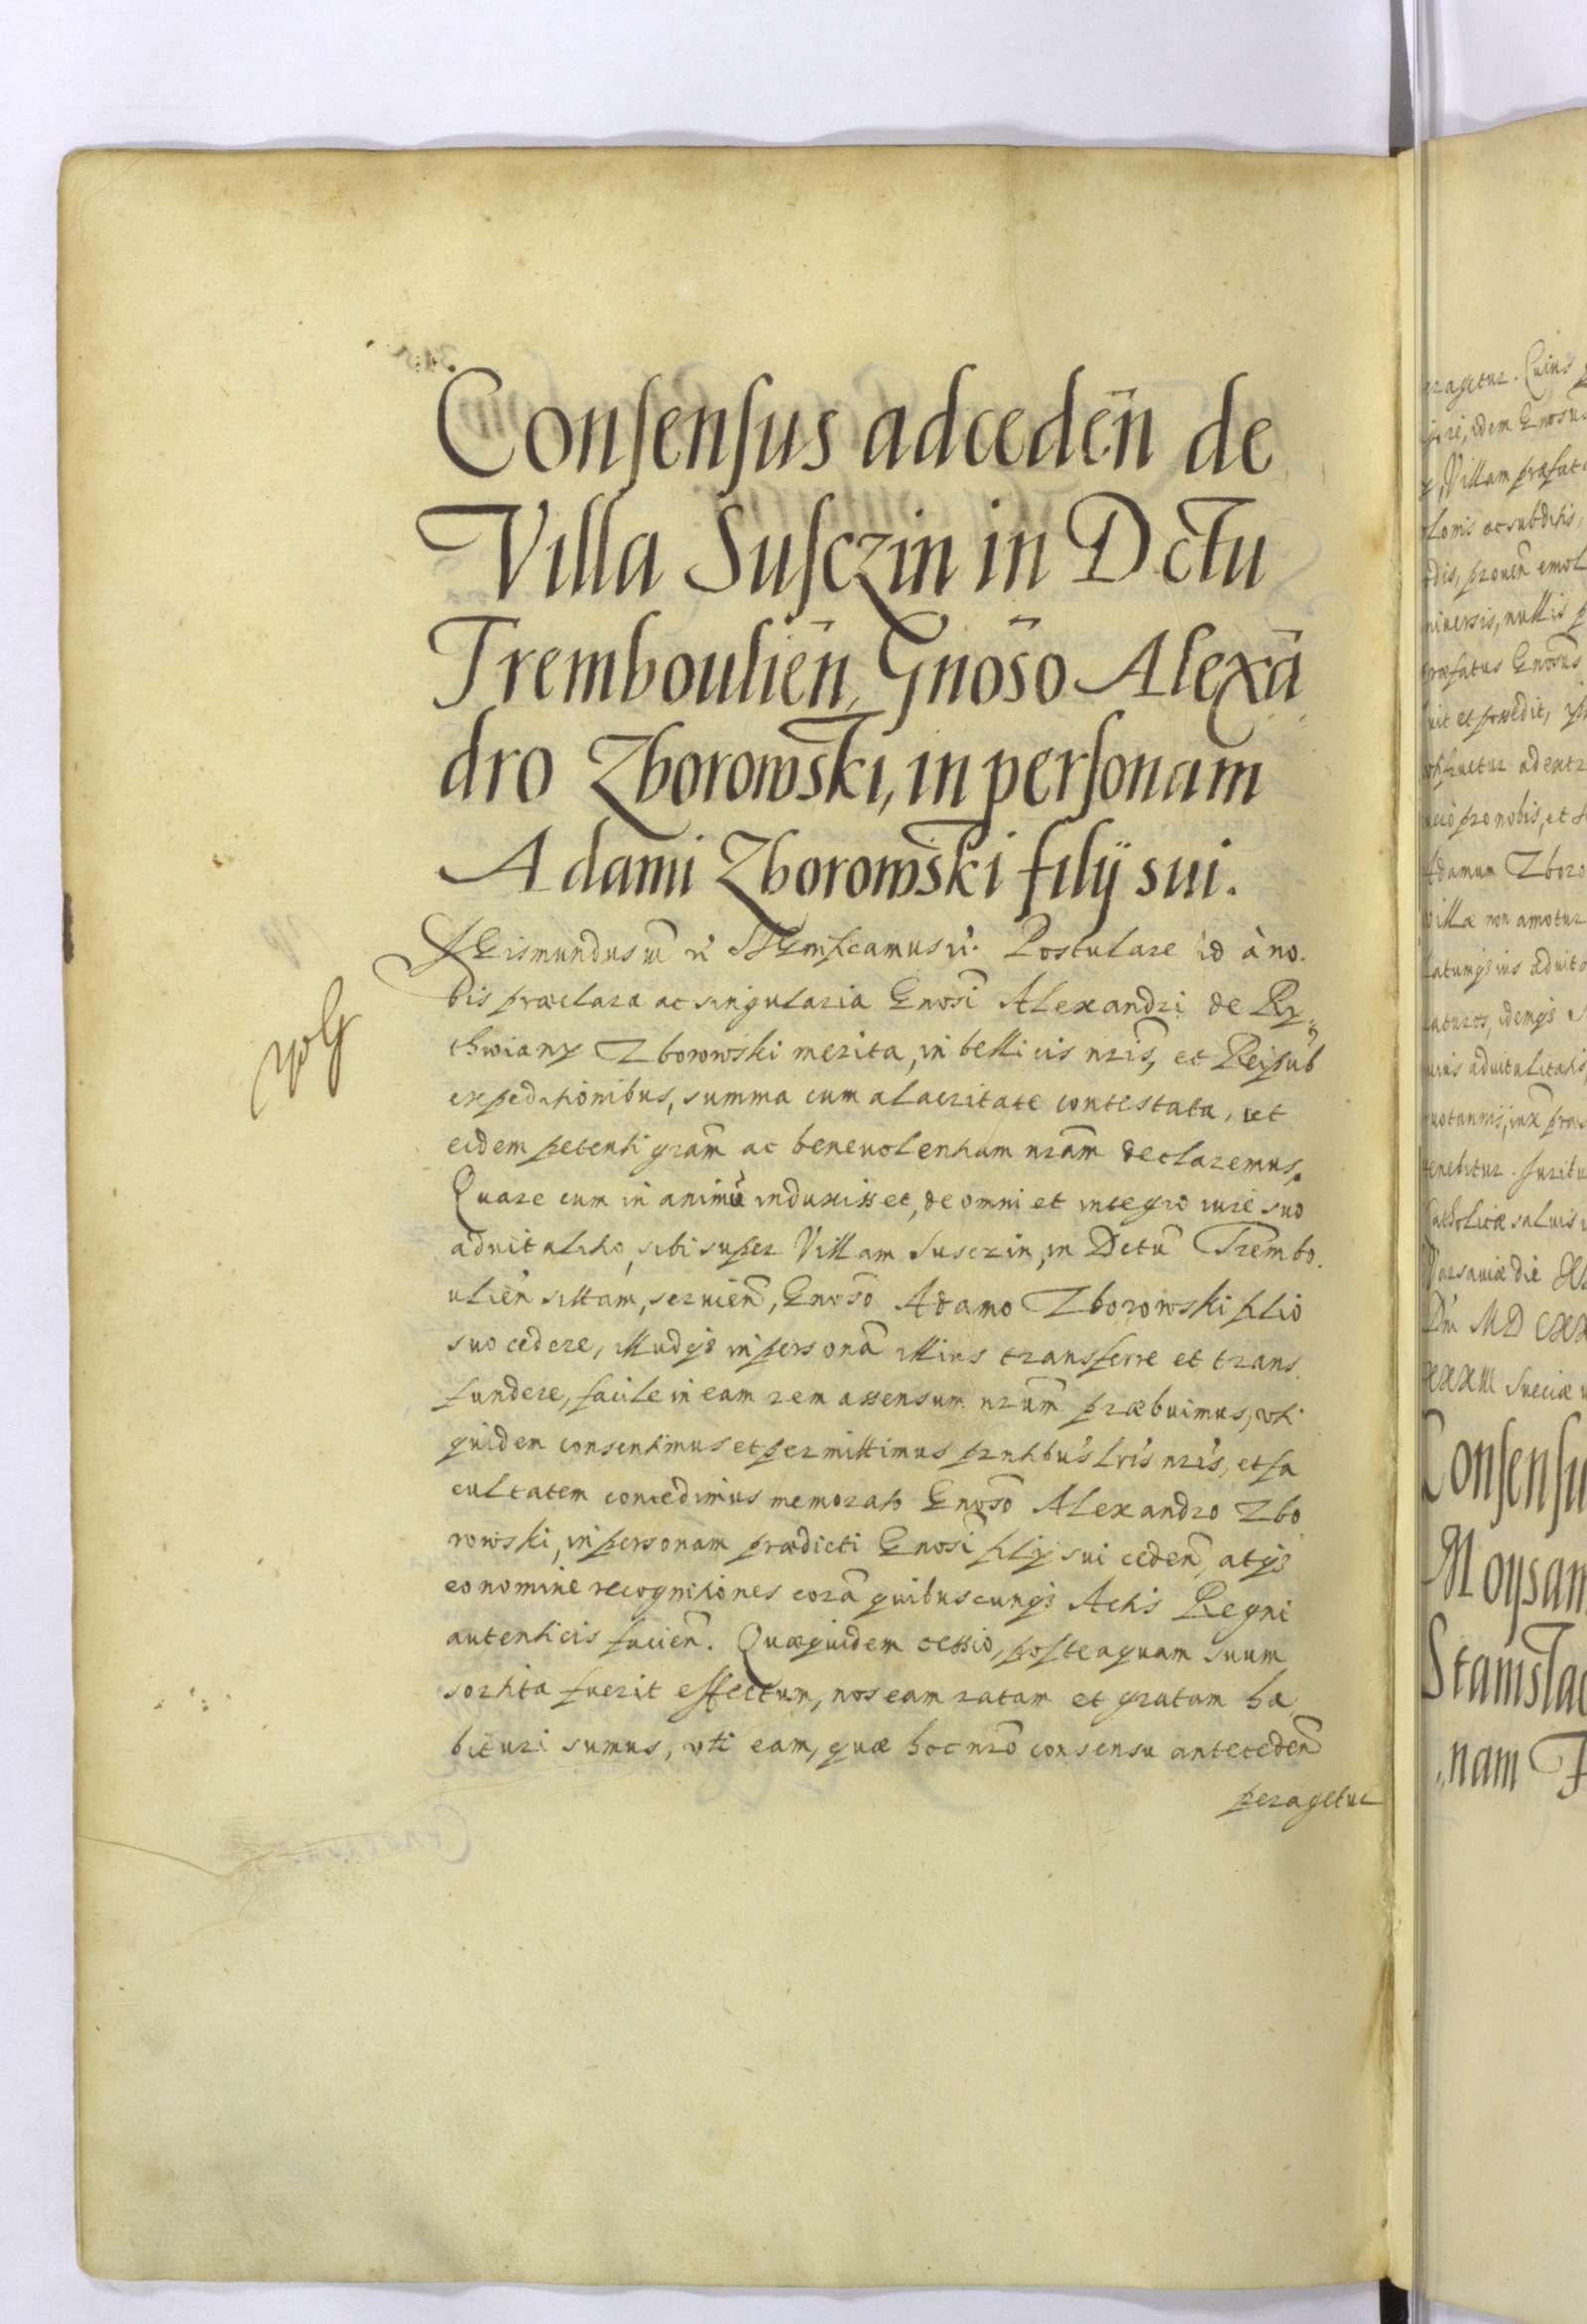 Consensus ad ceden̄ de
Villa Susczin in Dctu
Tremboulien̄, Gnōso Alexā
dro Zborowski, in personam
Adami Zborowski filÿ sui.
SGismundus etc. Significamus etc. Postulare id à no.
bis præclara ac singularia Gnosi Alexandri de Ry„
thwiany Zborowski merita, in bellicis nris, et Reipub
expeditionibus, summa cum alacritate contestata, ut
eidem petenti gram ac beneuolentiam nram declaremus.
Quare cum in animū induxisset, de omni et integro iure suo
aduitalitio, sibi super Villam Susczin, in Dctu Trembo.
ulien sitam, seruien, Gnoso Adamo Zborowski filio
suo cedere, illudq3 in personā illius transferre et trans.
fundere, facile in eam rem assensum nrum præbuimus, uti
quidem consentimus et permittimus pntibus lris nris, et fa
cultatem concedimus memorato Gnoso Alexandro Zbo
rowski, in personam prædicti Gnosi filij sui ceden, atq3
eo nomine recognitiones corā quibuscunq3 Actis Regni
autenticis facien. Quæquidem cessio, posteaquam suum
sortita fuerit effectum, nos eam ratam et gratam ha
bituri sumus, uti eam, quæ hoc nro consensu anteceden
peragetur
eragetur. Cuius
idem Gnosus
Villam præfat
lonis ac subditis,
dis, prouen emol
niuersis, nullis p
ræfatus Gnosus
uit et possedit,
Adamum Zboro
villæ non amotur
Varsauiæ die
Dni MDCXX
XXXIII Sueciæ
Consensu
Moysam
Stanislao
nam